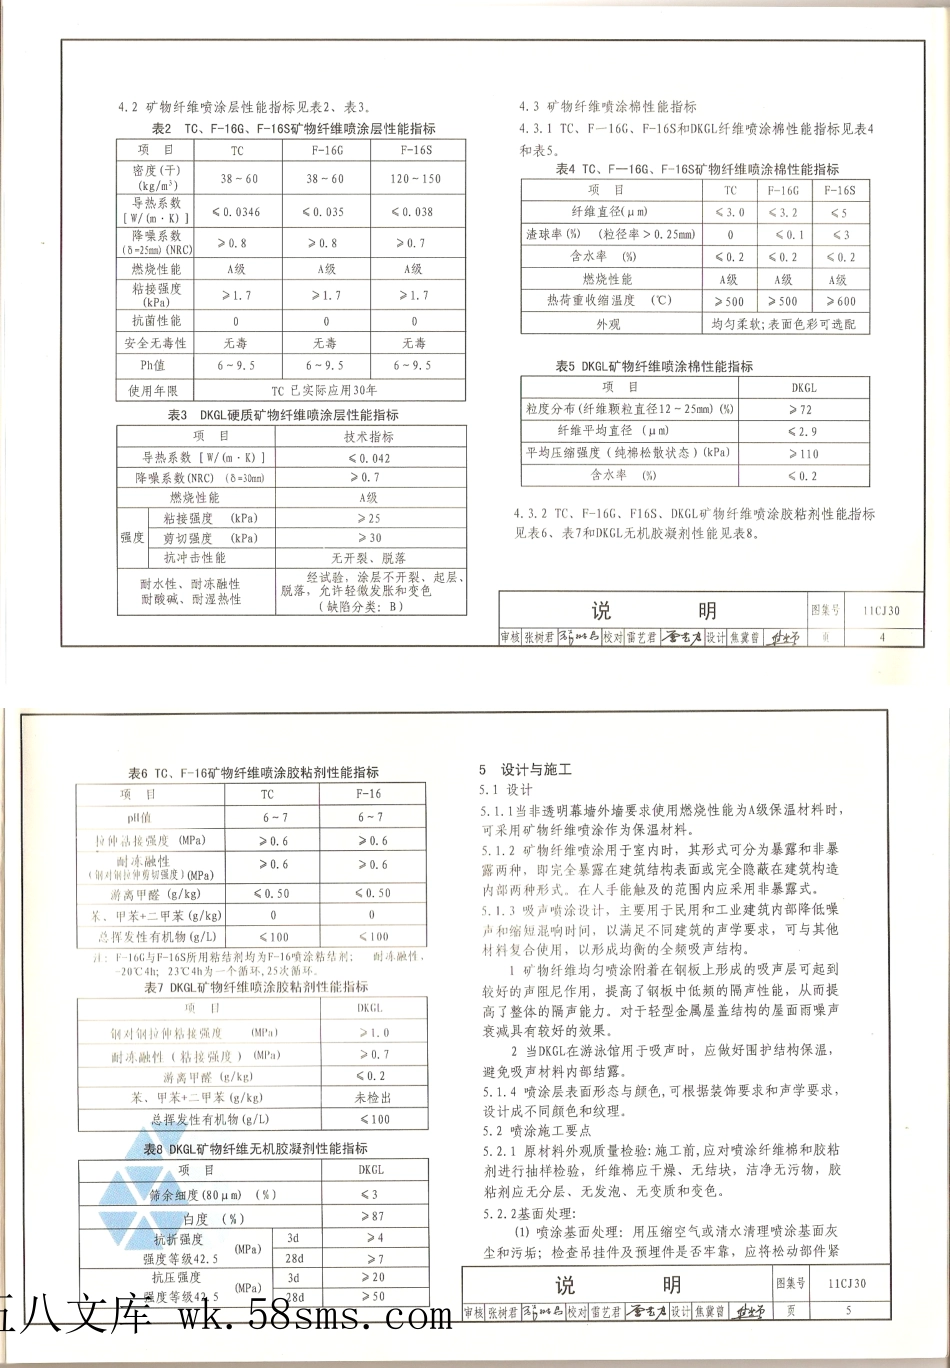 4.2 矿物纤维喷涂层性能指标见表2、表3。
表2 TC、F-16G、F-16S矿物纤维喷涂层性能指标
项 目 TC F-16G F-16S
密度(干) (kg/m³) 38~60 38~60 120~150
导热系数 [W/(m·K)] ≤0.0346 ≤0.035 ≤0.038
降噪系数 (δ=25mm)(NRC) ≥0.8 ≥0.8 ≥0.7
燃烧性能 A级 A级 A级
粘接强度 (kPa) ≥1.7 ≥1.7 ≥1.7
抗菌性能 0 0 0
安全无毒性 无毒 无毒 无毒
Ph值 6~9.5 6~9.5 6~9.5
使用年限 TC 已实际应用30年
表3 DKGL硬质矿物纤维喷涂层性能指标
项 目 技术指标
导热系数 [W/(m·K)] ≤0.042
降噪系数(NRC) (δ=30mm) ≥0.7
燃烧性能 A级
强度 粘接强度 (kPa) ≥25
剪切强度 (kPa) ≥30
抗冲击性能 无开裂、脱落
耐水性、耐冻融性
耐酸碱、耐湿热性
经试验,涂层不开裂、起层、
脱落,允许轻微发胀和变色
(缺陷分类: B)
4.3 矿物纤维喷涂棉性能指标
4.3.1 TC、F—16G、F-16S和DKGL纤维喷涂棉性能指标见表4
和表5。
表4 TC、F—16G、F-16S矿物纤维喷涂棉性能指标
项 目 TC F-16G F-16S
纤维直径(μm) ≤3.0 ≤3.2 ≤5
渣球率(%) (粒径率>0.25mm) 0 ≤0.1 ≤3
含水率 (%) ≤0.2 ≤0.2 ≤0.2
燃烧性能 A级 A级 A级
热荷重收缩温度 (℃) ≥500 ≥500 ≥600
外观 均匀柔软;表面色彩可选配
表5 DKGL矿物纤维喷涂棉性能指标
项 目 DKGL
粒度分布(纤维颗粒直径12~25mm)(%) ≥72
纤维平均直径 (μm) ≤2.9
平均压缩强度(纯棉松散状态)(kPa) ≥110
含水率 (%) ≤0.2
4.3.2 TC、F-16G、F16S、DKGL矿物纤维喷涂胶粘剂性能指标
见表6、表7和DKGL无机胶凝剂性能见表8。
说 明 图集号 11CJ30
审核 张树君 校对 雷艺君 设计 焦冀曾 页 4
表6 TC、F-16矿物纤维喷涂胶粘剂性能指标
项 目 TC F-16
pH值 6~7 6~7
拉伸粘接强度 (MPa) ≥0.6 ≥0.6
耐冻融性
(钢对钢拉伸剪切强度)(MPa) ≥0.6 ≥0.6
游离甲醛 (g/kg) ≤0.50 ≤0.50
苯、甲苯+二甲苯(g/kg) 0 0
总挥发性有机物(g/L) ≤100 ≤100
注: F-16G与F-16S所用粘结剂均为F-16喷涂粘结剂; 耐冻融性,
-20℃4h; 23℃4h为一个循环,25次循环。
表7 DKGL矿物纤维喷涂胶粘剂性能指标
项 目 DKGL
钢对钢拉伸粘接强度 (MPa) ≥1.0
耐冻融性(粘接强度) (MPa) ≥0.7
游离甲醛 (g/kg) ≤0.2
苯、甲苯+二甲苯(g/kg) 未检出
总挥发性有机物(g/L) ≤100
表8 DKGL矿物纤维无机胶凝剂性能指标
项 目 DKGL
筛余细度(80μm) (%) ≤3
白度 (%) ≥87
抗折强度
强度等级42.5 (MPa) 3d ≥4
28d ≥7
抗压强度
强度等级42.5 (MPa) 3d ≥20
28d ≥50
5 设计与施工
5.1 设计
5.1.1当非透明幕墙外墙要求使用燃烧性能为A级保温材料时,
可采用矿物纤维喷涂作为保温材料。
5.1.2 矿物纤维喷涂用于室内时,其形式可分为暴露和非暴
露两种,即完全暴露在建筑结构表面或完全隐蔽在建筑构造
内部两种形式。在人手能触及的范围内应采用非暴露式。
5.1.3 吸声喷涂设计,主要用于民用和工业建筑内部降低噪
声和缩短混响时间,以满足不同建筑的声学要求,可与其他
材料复合使用,以形成均衡的全频吸声结构。
1 矿物纤维均匀喷涂附着在钢板上形成的吸声层可起到
较好的声阻尼作用,提高了钢板中低频的隔声性能,从而提
高了整体的隔声能力。对于轻型金属屋盖结构的屋面雨噪声
衰减具有较好的效果。
2 当DKGL在游泳馆用于吸声时,应做好围护结构保温,
避免吸声材料内部结露。
5.1.4 喷涂层表面形态与颜色,可根据装饰要求和声学要求,
设计成不同颜色和纹理。
5.2 喷涂施工要点
5.2.1 原材料外观质量检验:施工前,应对喷涂纤维棉和胶粘
剂进行抽样检验,纤维棉应干燥、无结块,洁净无污物,胶
粘剂应无分层、无发泡、无变质和变色。
5.2.2基面处理:
(1) 喷涂基面处理: 用压缩空气或清水清理喷涂基面灰
尘和污垢; 检查吊挂件及预埋件是否牢靠,应将松动部件紧
说 明 图集号 11CJ30
审核 张树君 校对 雷艺君 设计 焦冀曾 页 5
五八文库 wk.58sms.com